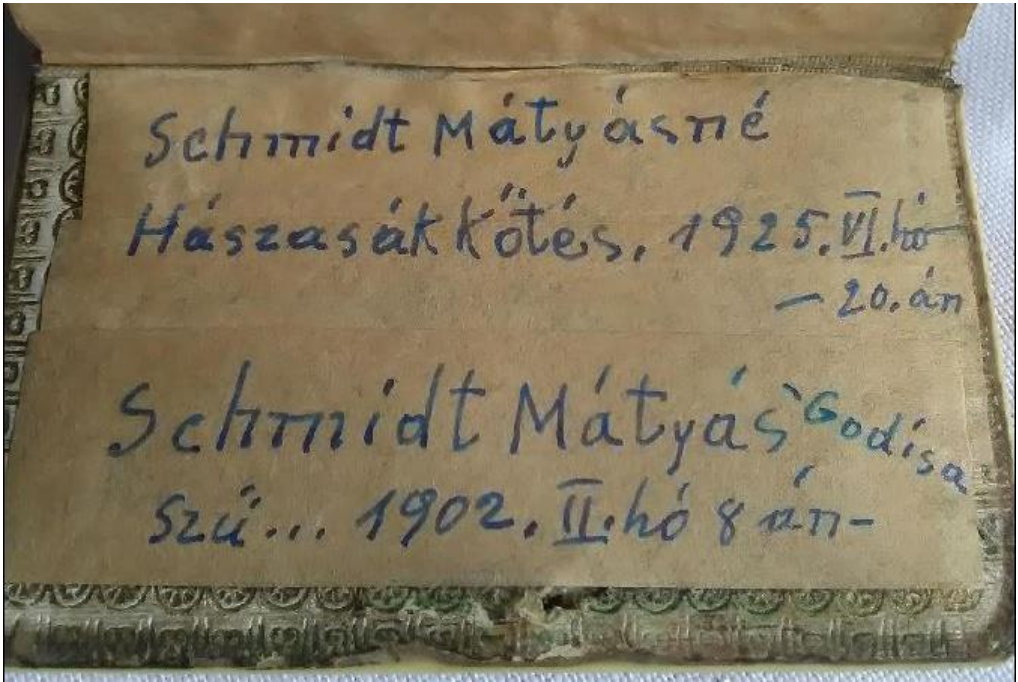 Schmidt Mátyásné
Hászasákkőtés. 1925. VI. hó
— 20. án
Schmidt Mátyás Godisa
Szü... 1902. II. hó 8 án-